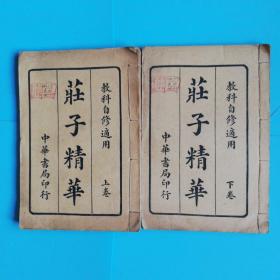 教科自修適用
莊子精華
上卷
中華書局印行
教科自修適用
莊子精華
下卷
中華書局印行